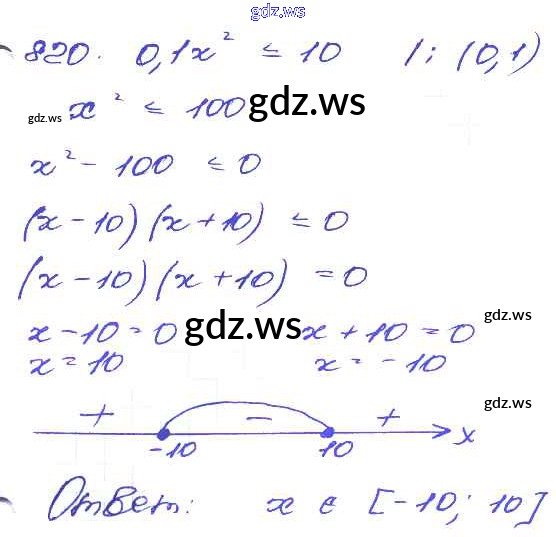 gdz.ws
820. 0,1x² ≤ 10 /: (0,1)
gdz.ws x² ≤ 100 gdz.ws
x² - 100 ≤ 0
(x - 10) (x + 10) ≤ 0
(x - 10) (x + 10) = 0
x - 10 = 0 gdz.ws x + 10 = 0 gdz.ws
x = 10 x = - 10
+ - + gdz.ws
-10 10 x
Ответ: x ∈ [-10; 10]